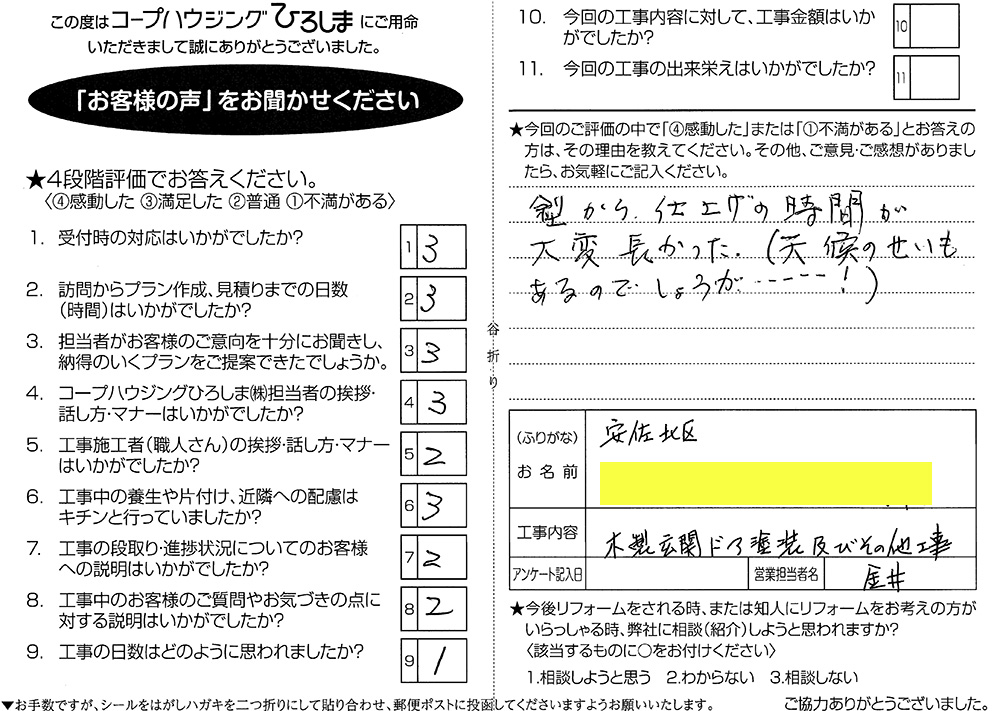 この度はコープハウジングひろしまにご用命
いただきまして誠にありがとうございました。
「お客様の声」をお聞かせください
★4段階評価でお答えください。
〈④感動した ③満足した ②普通 ①不満がある〉
1. 受付時の対応はいかがでしたか?
1 3
2. 訪問からプラン作成、見積りまでの日数
(時間)はいかがでしたか?
2 3
3. 担当者がお客様のご意向を十分にお聞きし、
納得のいくプランをご提案できたでしょうか。
3 3
4. コープハウジングひろしま㈱担当者の挨拶・
話し方・マナーはいかがでしたか?
4 3
5. 工事施工者(職人さん)の挨拶・話し方・マナー
はいかがでしたか?
5 2
6. 工事中の養生や片付け、近隣への配慮は
キチンと行っていましたか?
6 3
7. 工事の段取り・進捗状況についてのお客様
への説明はいかがでしたか?
7 2
8. 工事中のお客様のご質問やお気づきの点に
対する説明はいかがでしたか?
8 2
9. 工事の日数はどのように思われましたか?
9 1
▼お手数ですが、シールをはがしハガキを二つ折りにして貼り合わせ、郵便ポストに投函してくださいますようお願いいたします。
谷折り
10. 今回の工事内容に対して、工事金額はいか
がでしたか?
10
11. 今回の工事の出来栄えはいかがでしたか?
11
★今回のご評価の中で「④感動した」または「①不満がある」とお答えの
方は、その理由を教えてください。その他、ご意見・ご感想がありまし
たら、お気軽にご記入ください。
から、仕上げの時間が
大変長かった。(天候のせいも
あるのでしょうが-----!)
(ふりがな)
お名前
安佐北区
工事内容
木製玄関ドア塗装及びその他工事
アンケート記入日
営業担当者名
金井
★今後リフォームをされる時、または知人にリフォームをお考えの方が
いらっしゃる時、弊社に相談(紹介)しようと思われますか?
〈該当するものに○をお付けください〉
1.相談しようと思う 2.わからない 3.相談しない
ご協力ありがとうございました。